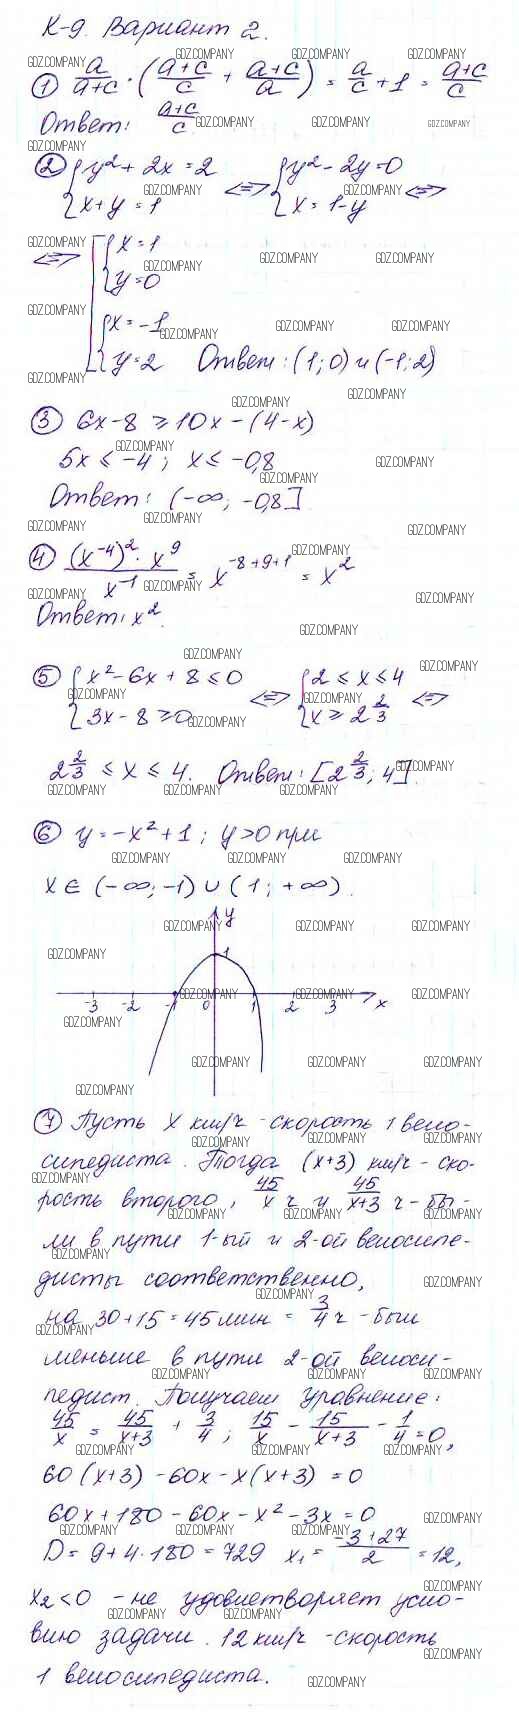 К-9. Вариант 2.
① a/(a+c) · ((a+c)/c + (a+c)/a) = a/c + 1 = (a+c)/c
Ответ: (a+c)/c
② { y² + 2x = 2 ⇔ { y² - 2y = 0 ⇔
{ x + y = 1 { x = 1 - y
⇔ [ { x = 1
{ y = 0
{ x = -1
{ y = 2 Ответ: (1; 0) и (-1; 2)
③ 6x - 8 ≥ 10x - (4 - x)
5x ≤ -4; x ≤ -0,8
Ответ: (-∞; -0,8]
④ ((x⁻⁴)² · x⁹)/x⁻¹ = x^(-8+9+1) = x²
Ответ: x².
⑤ { x² - 6x + 8 ≤ 0 ⇔ { 2 ≤ x ≤ 4 ⇔
{ 3x - 8 ≥ 0 { x ≥ 2 2/3
2 2/3 ≤ x ≤ 4. Ответ: [2 2/3; 4].
⑥ y = -x² + 1; y > 0 при
x ∈ (-∞; -1) ∪ (1; +∞).
y
1
-3 -2 -1 0 1 2 3 x
⑦ Пусть x км/ч - скорость 1 вело-
сипедиста. Тогда (x+3) км/ч - ско-
рость второго, 45/x ч и 45/(x+3) ч - бы-
ли в пути 1-ый и 2-ой велосипе-
дисты соответственно,
на 30 + 15 = 45 мин = 3/4 ч - был
меньше в пути 2-ой велоси-
педист. Получаем уравнение:
45/x = 45/(x+3) + 3/4; 15/x - 15/(x+3) - 1/4 = 0,
60(x+3) - 60x - x(x+3) = 0
60x + 180 - 60x - x² - 3x = 0
D = 9 + 4·180 = 729 x₁ = (-3+27)/2 = 12,
x₂ < 0 - не удовлетворяет усло-
вию задачи. 12 км/ч - скорость
1 велосипедиста.
GDZ.COMPANY